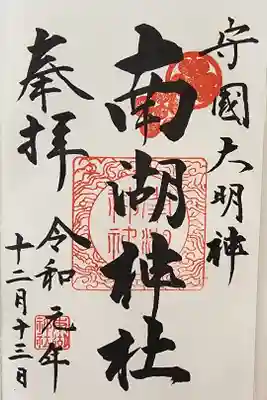 守國大明神
南湖神社
奉拝
令和元年
十二月十三日